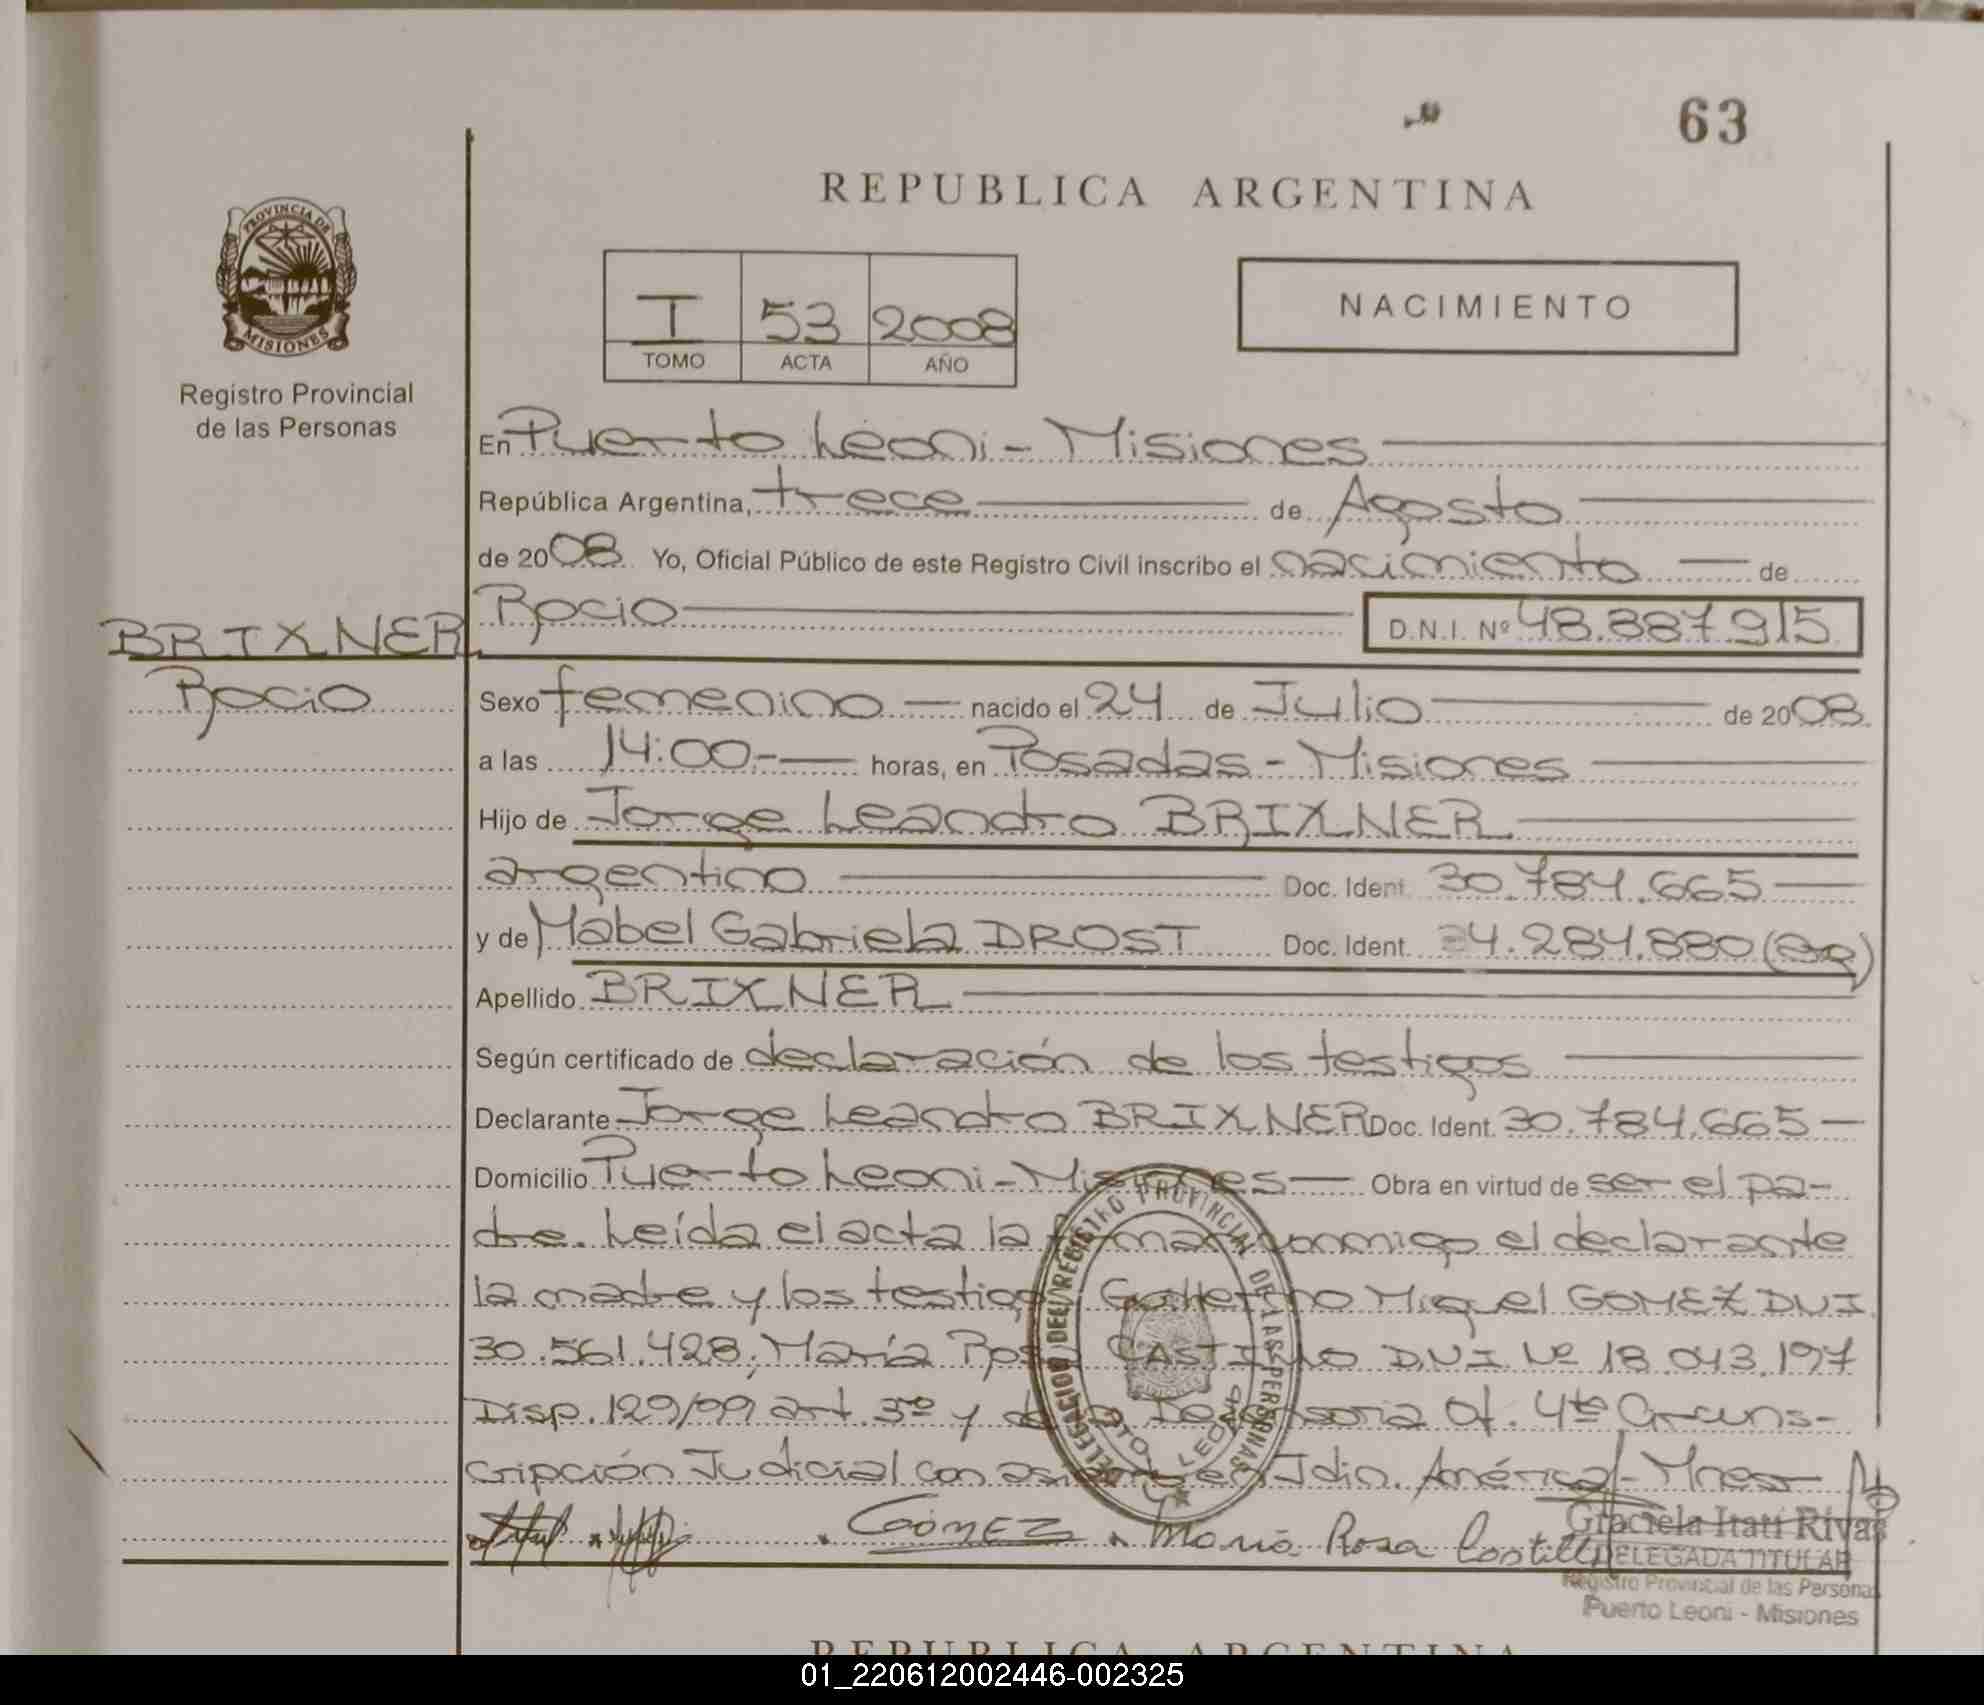 63
REPUBLICA ARGENTINA
PROVINCIA DE
MISIONES
Registro Provincial
de las Personas
I 53 2008
TOMO ACTA AÑO
NACIMIENTO
En Puerto Leoni - Misiones
República Argentina, trece de Agosto
de 2008 Yo, Oficial Público de este Registro Civil inscribo el nacimiento de
Rocio D.N.I. Nº 48.387.915
BRIXNER
Rocio
Sexo femenino nacido el 24 de Julio de 2008.
a las 14:00.- horas, en Posadas - Misiones
Hijo de Jorge Leandro BRIXNER
argentino Doc. Ident. 30.784.665
y de Mabel Gabriela DROST Doc. Ident. 34.284.880 (arg)
Apellido BRIXNER
Según certificado de declaración de los testigos
Declarante Jorge Leandro BRIXNER Doc. Ident. 30.784.665
Domicilio Puerto Leoni - Misiones Obra en virtud de ser el pa-
dre. Leída el acta la firman conmigo el declarante
la madre y los testigos Guillermo Miguel GOMEZ DNI
30.561.428; María Rosa CASTILLO DNI Nº 18.043.197
Disp. 129/99 art. 3º y de la Defensoria Of. 4ta Circuns-
cripción Judicial con asiento en Jdin. América - Mnes
GÓMEZ María Rosa Castillo
DELEGACION DEL REGISTRO PROVINCIAL DE LAS PERSONAS
PTO. LEONI
Graciela Itatí Rivas
DELEGADA TITULAR
Registro Provincial de las Personas
Puerto Leoni - Misiones
REPUBLICA ARGENTINA
01_220612002446-002325